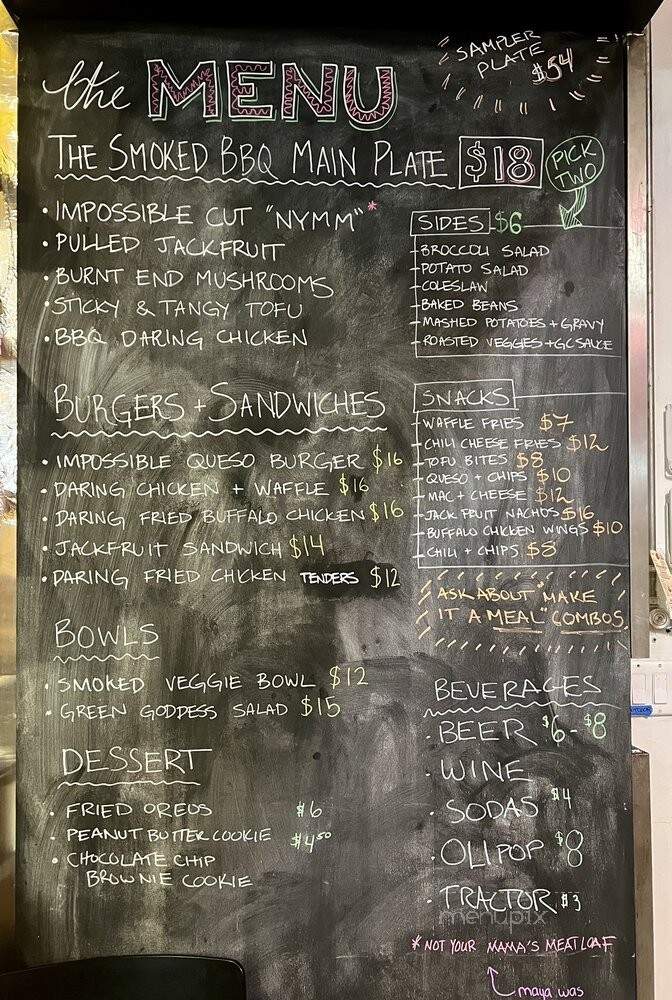 the MENU
SAMPLER
PLATE
$54
THE SMOKED BBQ MAIN PLATE $18
PICK
TWO
• IMPOSSIBLE CUT "NYMM"*
• PULLED JACKFRUIT
• BURNT END MUSHROOMS
• STICKY & TANGY TOFU
• BBQ DARING CHICKEN
SIDES $6
- BROCCOLI SALAD
- POTATO SALAD
- COLESLAW
- BAKED BEANS
- MASHED POTATOES + GRAVY
- ROASTED VEGGIES + GC SAUCE
BURGERS + SANDWICHES
• IMPOSSIBLE QUESO BURGER $16
• DARING CHICKEN + WAFFLE $16
• DARING FRIED BUFFALO CHICKEN $16
• JACKFRUIT SANDWICH $14
• DARING FRIED CHICKEN TENDERS $12
SNACKS
- WAFFLE FRIES $7
- CHILI CHEESE FRIES $12
- TOFU BITES $8
- QUESO + CHIPS $10
- MAC + CHEESE $12
- JACK FRUIT NACHOS $16
- BUFFALO CHICKEN WINGS $10
- CHILI + CHIPS $8
ASK ABOUT "MAKE
IT A MEAL" COMBOS
BOWLS
• SMOKED VEGGIE BOWL $12
• GREEN GODDESS SALAD $15
DESSERT
• FRIED OREOS $6
• PEANUT BUTTER COOKIE $4.50
• CHOCOLATE CHIP
BROWNIE COOKIE
BEVERAGES
• BEER $6-$8
• WINE
• SODAS $4
• OLIPOP $8
• TRACTOR $3
menupix
* NOT YOUR MAMA'S MEATLOAF
maya was